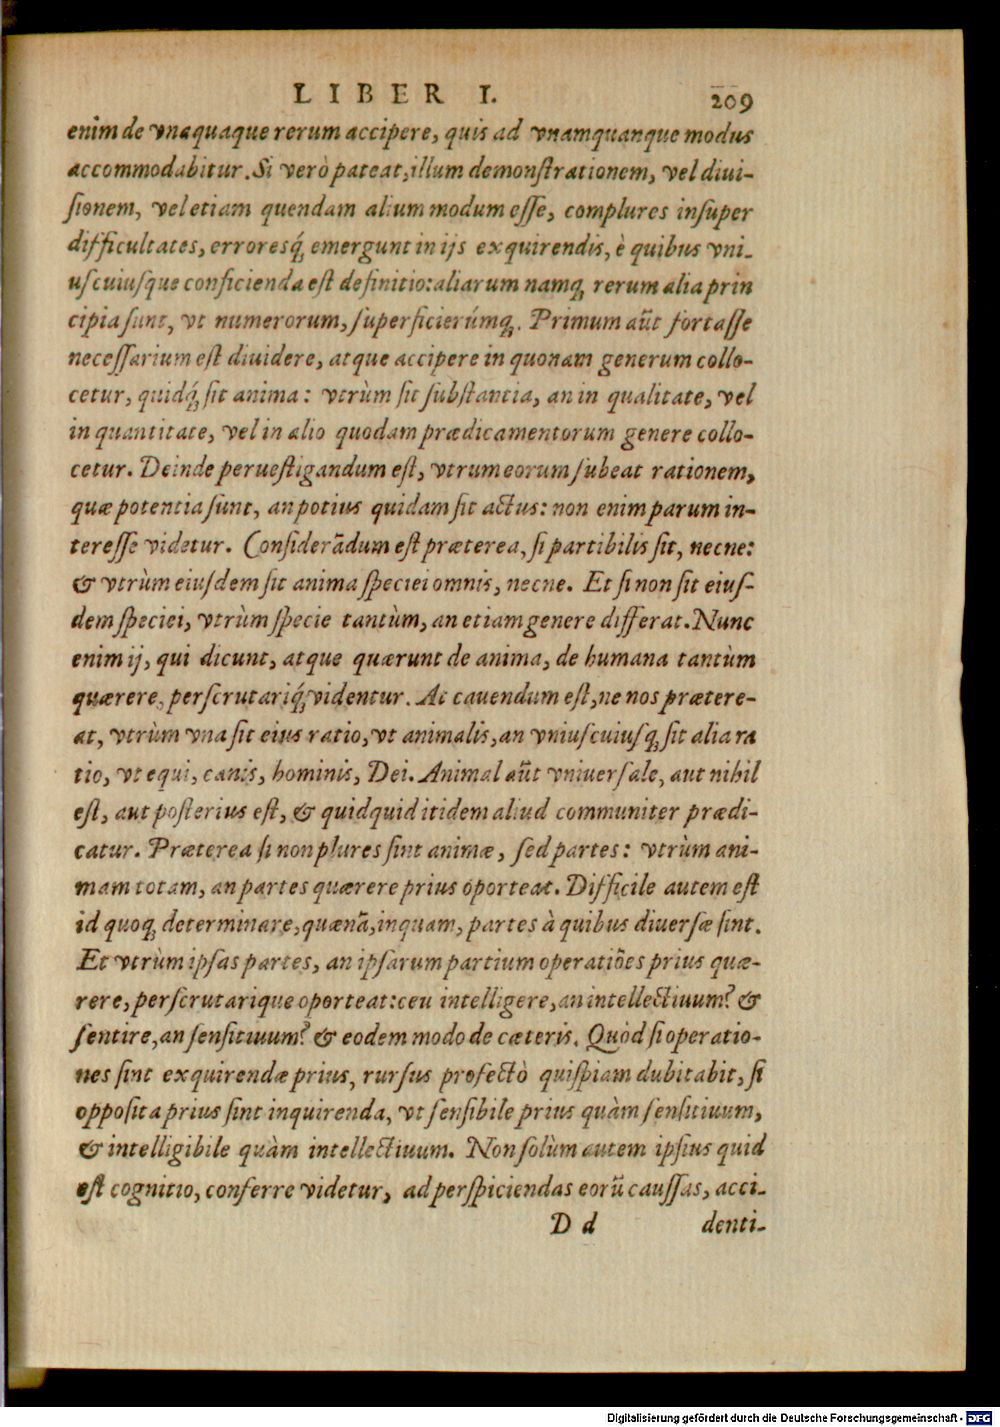 LIBER I. 209
enim de vnaquaque rerum accipere, quis ad vnamquanque modus
accommodabitur. Si verò pateat, illum demonſtrationem, vel diui-
ſionem, vel etiam quendam alium modum eſſe, complures inſuper
difficultates, erroresq́ꝫ emergunt in ijs exquirendis, è quibus vni-
uſcuiuſque conficienda eſt definitio: aliarum namqꝫ rerum alia prin
cipia ſunt, vt numerorum, ſuperficierúmqꝫ. Primum aūt fortaſſe
neceſſarium eſt diuidere, atque accipere in quonam generum collo-
cetur, quidq́ꝫ ſit anima: vtrùm ſit ſubſtantia, an in qualitate, vel
in quantitate, vel in alio quodam prædicamentorum genere collo-
cetur. Deinde perueſtigandum eſt, vtrum eorum ſubeat rationem,
quæ potentia ſunt, an potius quidam ſit actus: non enim parum in-
tereſſe videtur. Conſiderādum eſt præterea, ſi partibilis ſit, necne:
& vtrùm eiuſdem ſit anima ſpeciei omnis, necne. Et ſi non ſit eiuſ-
dem ſpeciei, vtrùm ſpecie tantùm, an etiam genere differat. Nunc
enim ij, qui dicunt, atque quærunt de anima, de humana tantùm
quærere, perſcrutariq́ꝫ videntur. At cauendum eſt, ne nos prætere-
at, vtrùm vna ſit eius ratio, vt animalis, an vniuſcuiuſqꝫ ſit alia ra
tio, vt equi, canis, hominis, Dei. Animal aūt vniuerſale, aut nihil
eſt, aut poſterius eſt, & quidquid itidem aliud communiter prædi-
catur. Præterea ſi non plures ſint animæ, ſed partes: vtrùm ani-
mam totam, an partes quærere prius oporteat. Difficile autem eſt
id quoqꝫ determinare, quænā, inquam, partes à quibus diuerſæ ſint.
Et vtrùm ipſas partes, an ipſarum partium operatiōes prius quæ-
rere, perſcrutarique oporteat: ceu intelligere, an intellectiuum? &
ſentire, an ſenſitiuum? & eodem modo de cæteris. Quòd ſi operatio-
nes ſint exquirendæ prius, rurſus profectò quiſpiam dubitabit, ſi
oppoſita prius ſint inquirenda, vt ſenſibile prius quàm ſenſitiuum,
& intelligibile quàm intellectiuum. Non ſolùm autem ipſius quid
eſt cognitio, conferre videtur, ad perſpiciendas eorū cauſſas, acci-
D d denti-
Digitalisierung gefördert durch die Deutsche Forschungsgemeinschaft - DFG